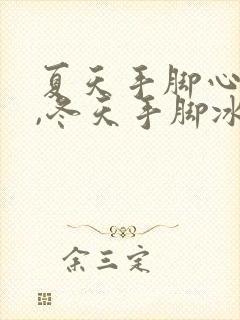 夏天手脚心
,冬天手脚冰
余三定